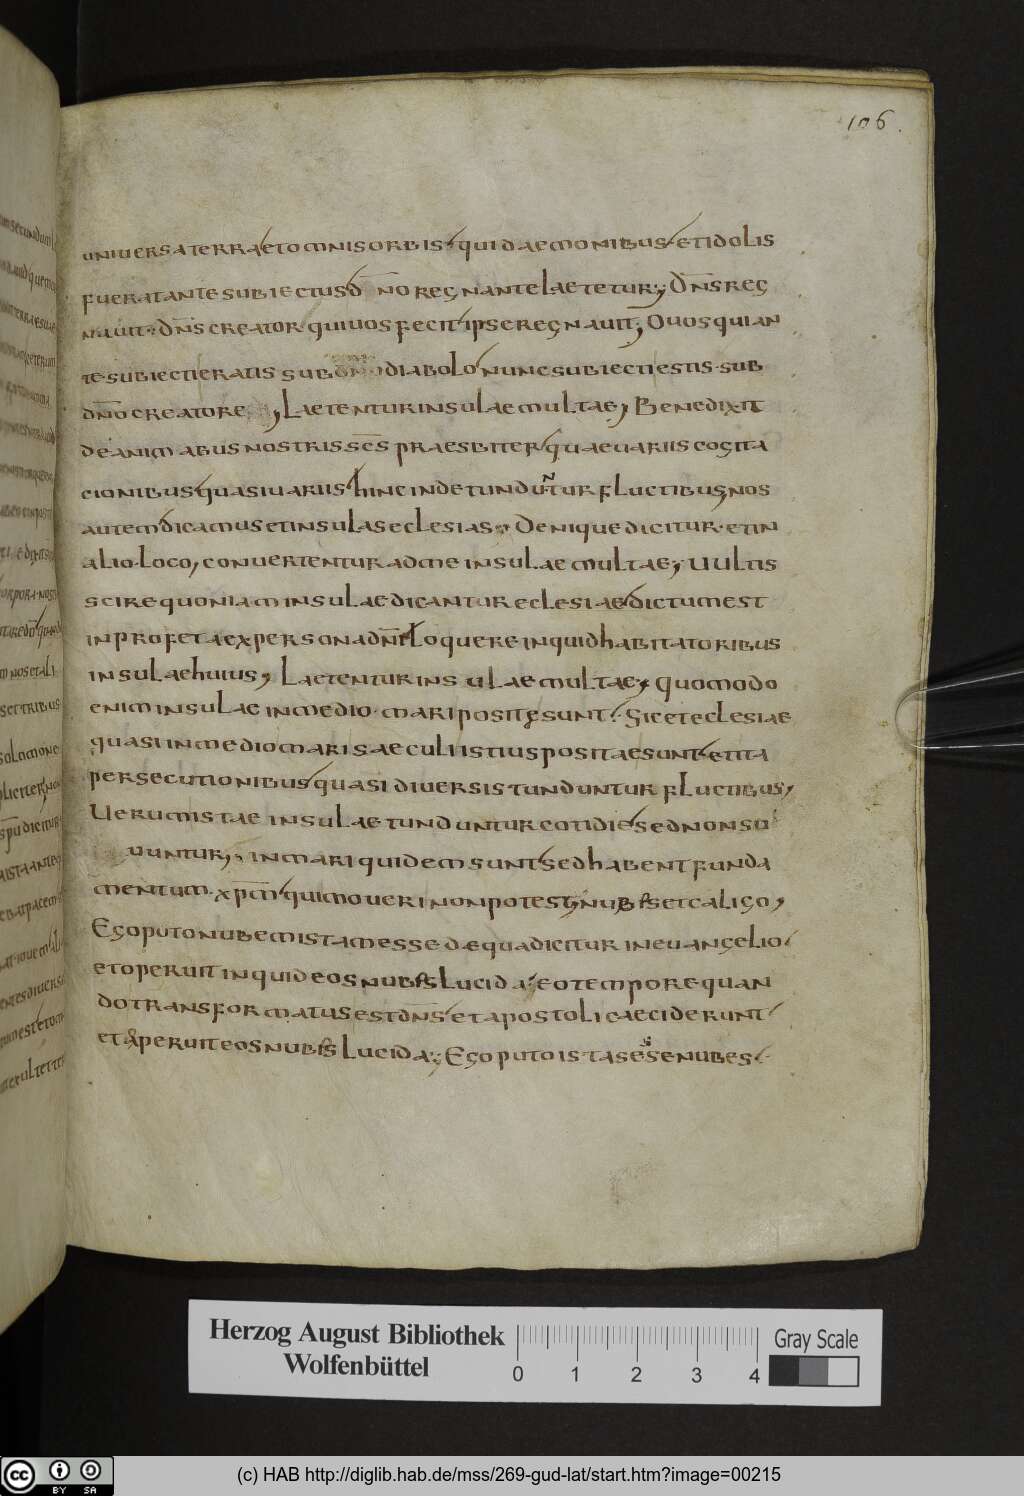 106.
universa terra et omnis orbis qui daemonibus et idolis
fuerat ante subiectus dno regnante laetetur; Dns reg
navit. dns creator qui vos fecit ipse regnavit; O vos qui an
te subiecti eratis sub diabolo nunc subiecti estis. sub
dno creatore, Laetentur insulae multae, Benedixit
de animabus nostris scs praesbiter quae variis cogita
cionibus quasi variis hinc inde tunduntur fluctibus, nos
autem dicamus et insulas eclesias. Denique dicitur. et in
alio loco, convertentur ad me insulae multae; Vultis
scire quoniam insulae dicantur eclesiae dictum est
in profeta ex persona dni loquere inquid habitatoribus
insulae huius, Laetentur insulae multae, quomodo
enim insulae in medio mari posite sunt. Sic et eclesiae
quasi in medio maris aeculi istius positae sunt et ita
persecutionibus quasi diversis tunduntur fluctibus,
Verum istae insulae tunduntur cotidie sed non sol
vuntur, in mari quidem sunt sed habent funda
mentum. xpm qui moveri non potest, nubes et caligo,
Ego puto nubem istam esse de qua dicitur in euangelio
et operuit inquid eos nubes lucida. eo tempore quan
do transformatus est dns et apostoli caeciderunt
et operuit eos nubes lucida; Ego puto istas esse nubes
Herzog August Bibliothek
Wolfenbüttel
0 1 2 3 4
Gray Scale
cc BY SA
(c) HAB http://diglib.hab.de/mss/269-gud-lat/start.htm?image=00215